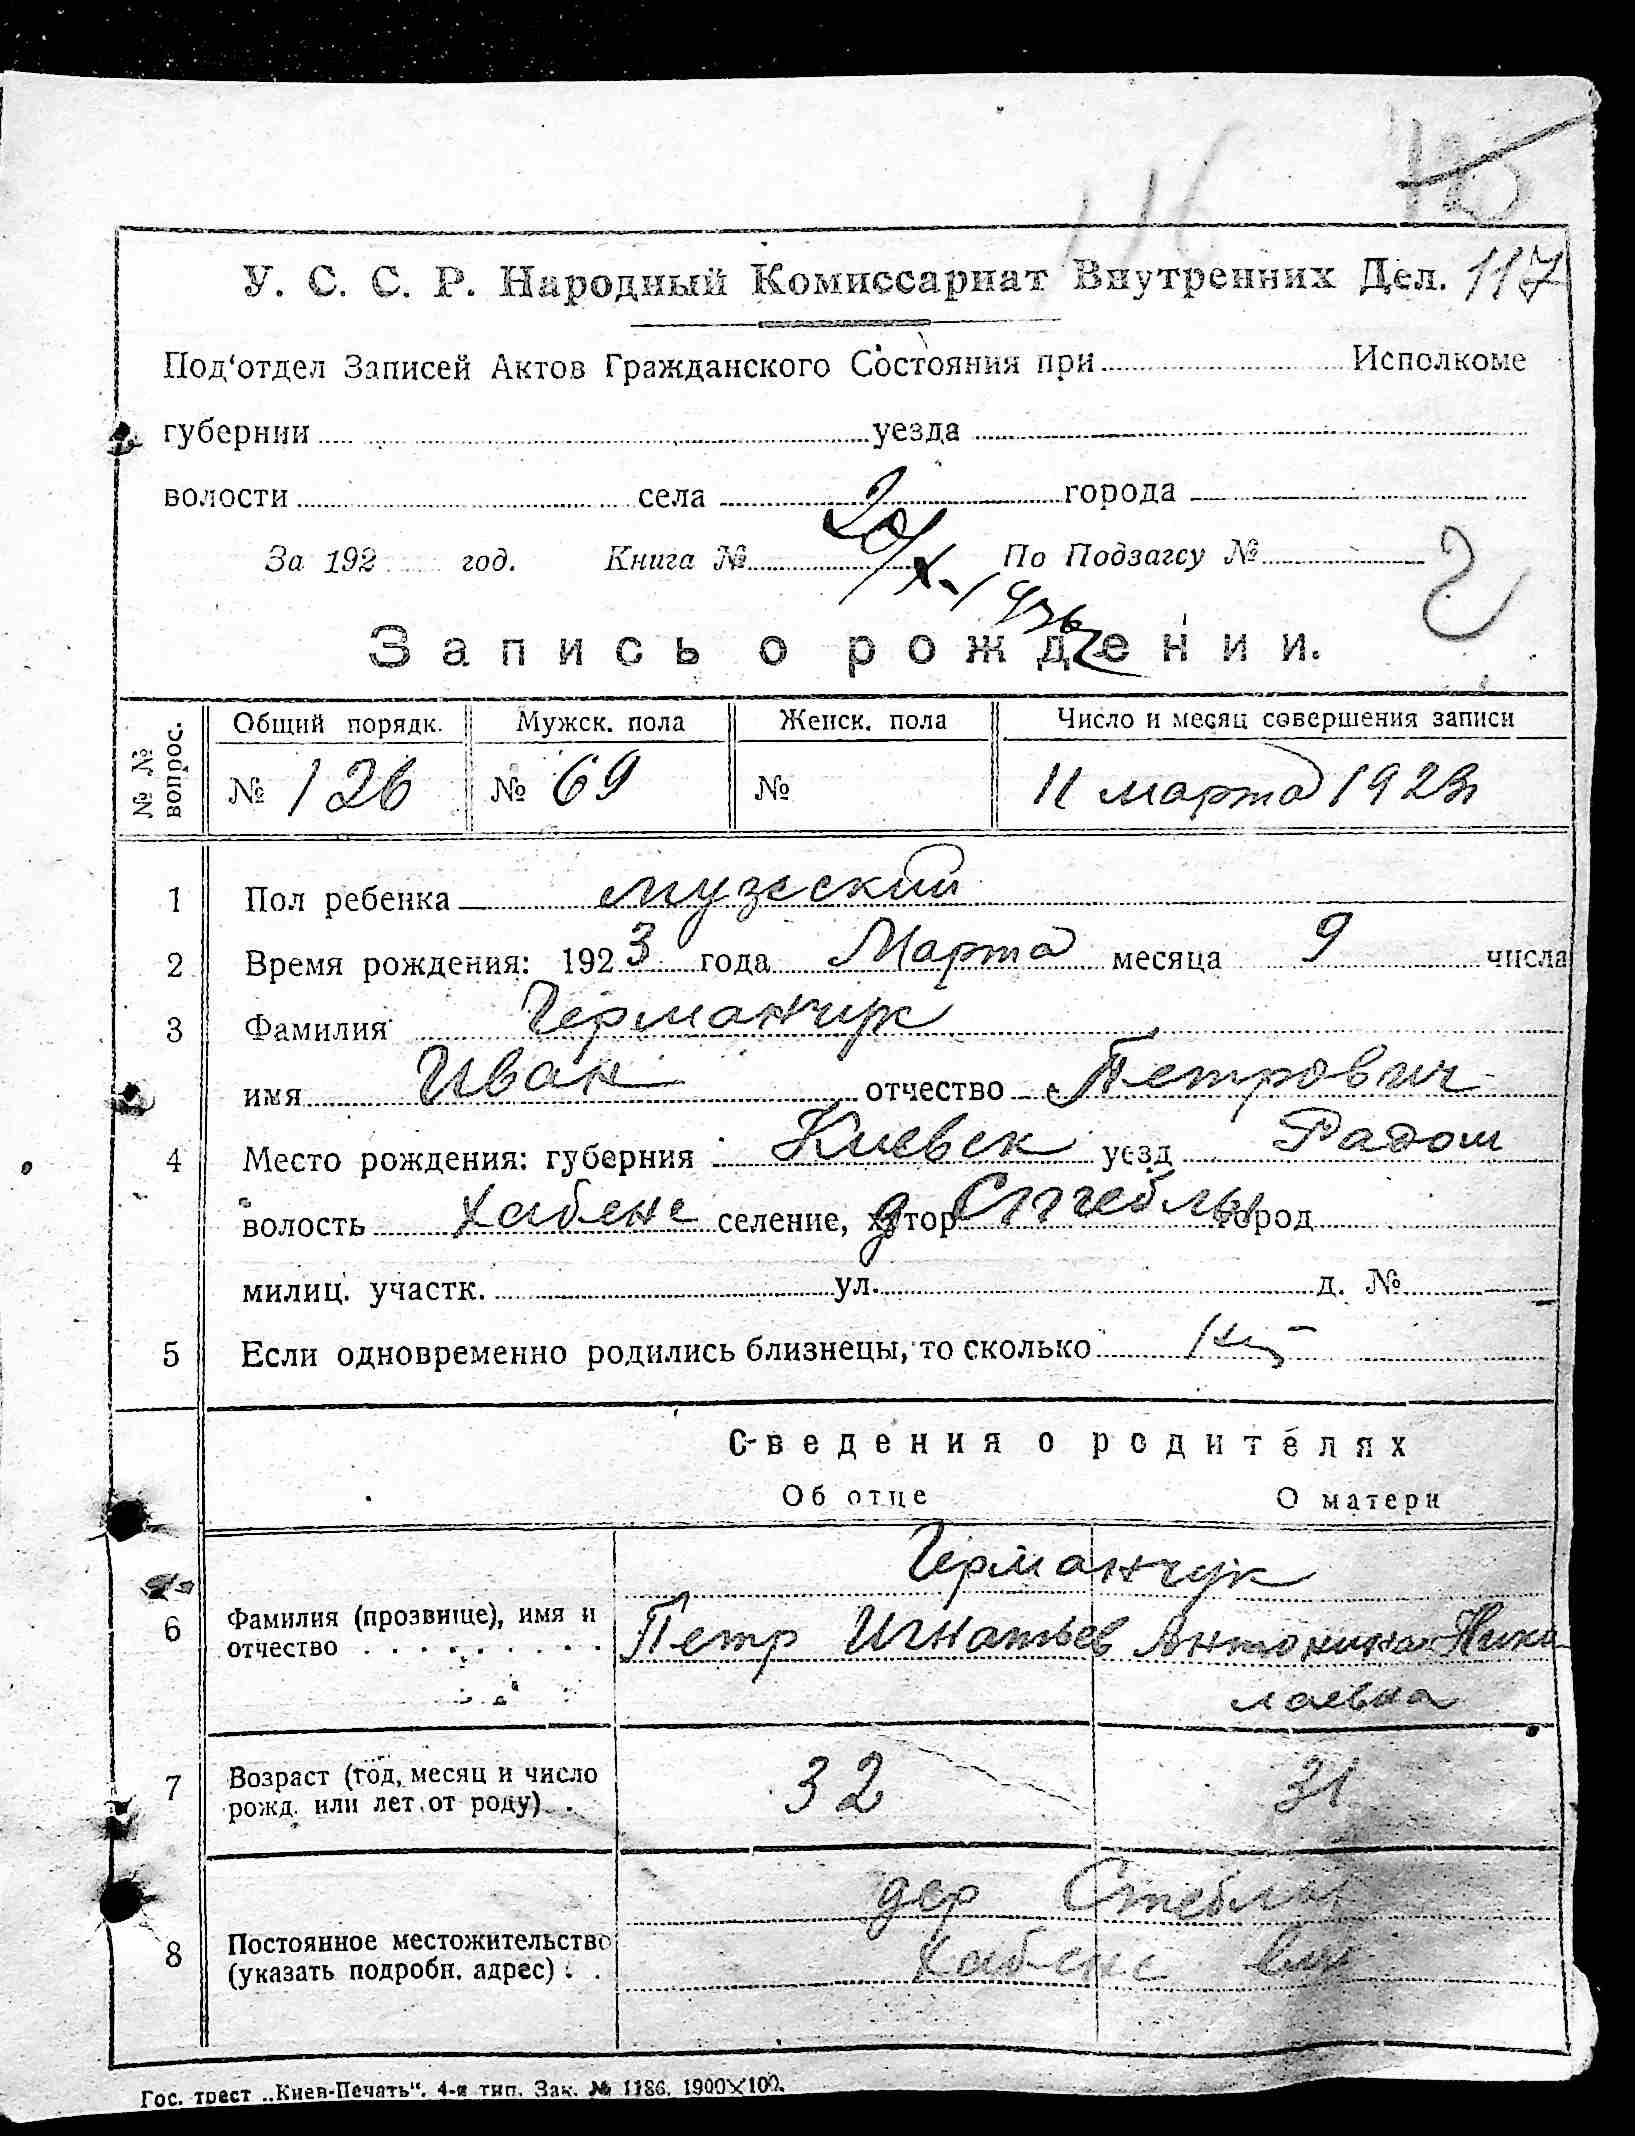 116
У. С. С. Р. Народный Комиссариат Внутренних Дел. 117
Под'отдел Записей Актов Гражданского Состояния при Исполкоме
губернии уезда
волости села города
20/X-1936
За 192 год. Книга № По Подзагсу №
Запись о рождении.
№ № вопрос. Общий порядк. Мужск. пола Женск. пола Число и месяц совершения записи
№ 126 № 69 № 11 марта 1923
1 Пол ребенка мужской
2 Время рождения: 1923 года Марта месяца 9 числа
3 Фамилия Германчук
имя Иван отчество Петрович
4 Место рождения: губерния Киевск уезд Радом
волость Хабенс селение, хутор д Стебли город
милиц. участк. ул. д. №
5 Если одновременно родились близнецы, то сколько
Сведения о родителях
Об отце О матери
Германчук
6 Фамилия (прозвище), имя и
отчество Петр Игнатьев Антонина Нико
лаевна
7 Возраст (год, месяц и число
рожд. или лет от роду) 32 31
дер Стебли
8 Постоянное местожительство
(указать подробн. адрес) Хабенс вол
Гос. трест „Киев-Печать“. 4-я тип. Зак. № 1186. 1900×100.